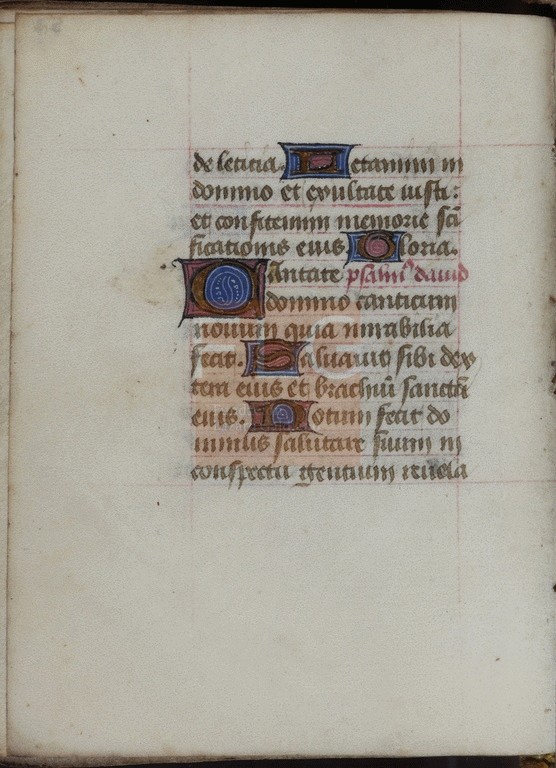 de leticia. Letamini in
domino et exultate iusti:
et confitemini memorie sc̄i
ficationis eius. Gloria.
Cantate psalm̄ dauid
domino canticum
nouum quia mirabilia
fecit. Saluauit sibi dex
tera eius et brachiū sanctū
eius. Notum fecit do
minus salutare suum in
conspectu gentium reuela